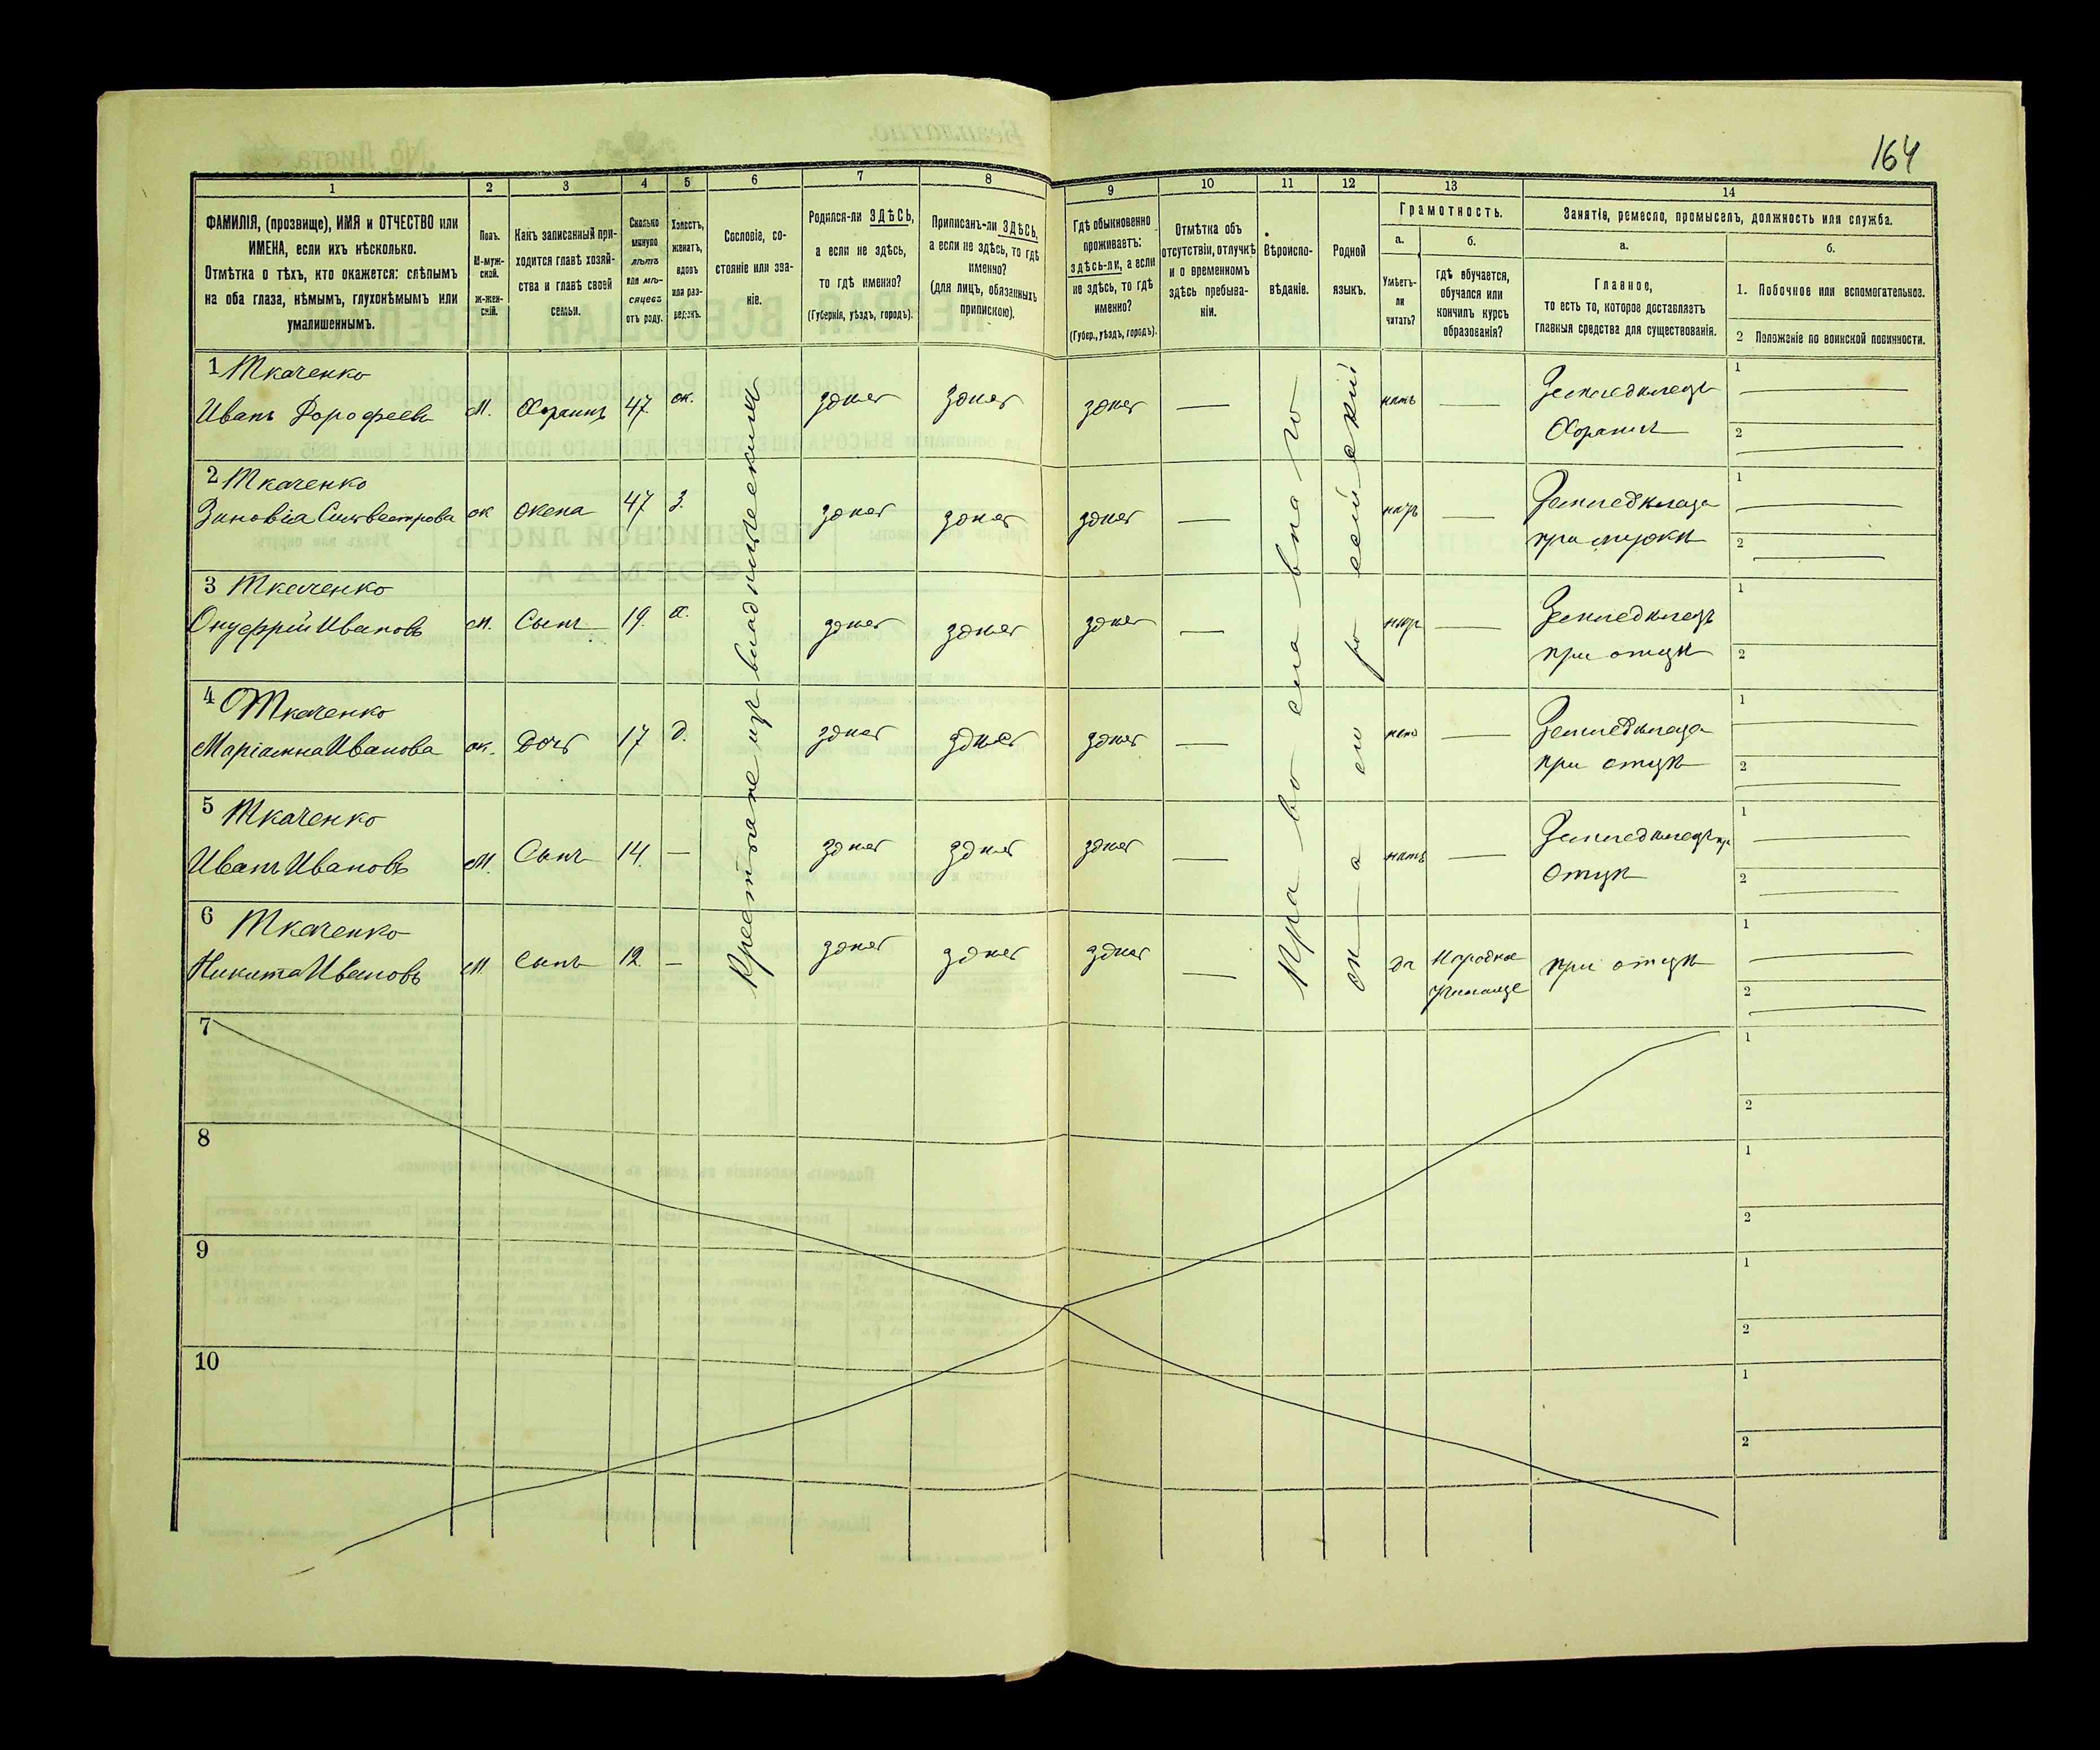 164
1 2 3 4 5 6 7 8 9 10 11 12 13 14
ФАМИЛІЯ, (прозвище), ИМЯ и ОТЧЕСТВО или
ИМЕНА, если ихъ нѣсколько.
Отмѣтка о тѣхъ, кто окажется: слѣпымъ
на оба глаза, нѣмымъ, глухонѣмымъ или
умалишеннымъ.
Полъ.
М-муж-
ской.
Ж-жен-
скій.
Какъ записанный при-
ходится главѣ хозяй-
ства и главѣ своей
семьи.
Сколько
минуло
лѣтъ
или мѣ-
сяцевъ
отъ роду.
Холостъ,
женатъ,
вдовъ
или раз-
веденъ.
Сословіе, со-
стояніе или зва-
ніе.
Родился-ли ЗДѢСЬ,
а если не здѣсь,
то гдѣ именно?
(Губернія, уѣздъ, городъ).
Приписанъ-ли ЗДѢСЬ,
а если не здѣсь, то гдѣ
именно?
(для лицъ, обязанныхъ
припискою).
Гдѣ обыкновенно
проживаетъ:
здѣсь-ли, а если
не здѣсь, то гдѣ
именно?
(Губер., уѣздъ, городъ).
Отмѣтка объ
отсутствіи, отлучкѣ
и о временномъ
здѣсь пребыва-
ніи.
Вѣроиспо-
вѣданіе.
Родной
языкъ.
Грамотность.
а.
Умѣетъ-
ли
читать?
б.
Гдѣ обучается,
обучался или
кончилъ курсъ
образованія?
Занятіе, ремесло, промыселъ, должность или служба.
а.
Главное,
то есть то, которое доставляетъ
главныя средства для существованія.
б.
1. Побочное или вспомогательное.
2 Положеніе по воинской повинности.
Крестьяне изъ владѣльческихъ
Православнаго
Малороссійскій
1 Ткаченко
Иванъ Дорофеевъ М. Хозяинъ 47 ж. здѣсь здѣсь здѣсь — нѣтъ — Земледѣлецъ
Хозяинъ
1
2
2 Ткаченко
Зиновія Сильвестрова ж жена 47 з. здѣсь здѣсь здѣсь — нѣтъ — Земледѣлица
при мужѣ
1
2
3 Ткаченко
Онуфрій Ивановъ М. Сынъ 19. х. здѣсь здѣсь здѣсь — нѣтъ — Земледѣлецъ
при отцѣ
1
2
4 Ткаченко
Маріамна Иванова ж. Дочь 17 д. здѣсь здѣсь здѣсь — нѣтъ — Земледѣлица
при отцѣ
1
2
5 Ткаченко
Иванъ Ивановъ М. Сынъ 14. — здѣсь здѣсь здѣсь — нѣтъ — Земледѣлецъ пр
отцѣ
1
2
6 Ткаченко
Никита Ивановъ М Сынъ 12. — здѣсь здѣсь здѣсь — да Народное
училище
при отцѣ
1
2
7
1
2
8
1
2
9
1
2
10
1
2